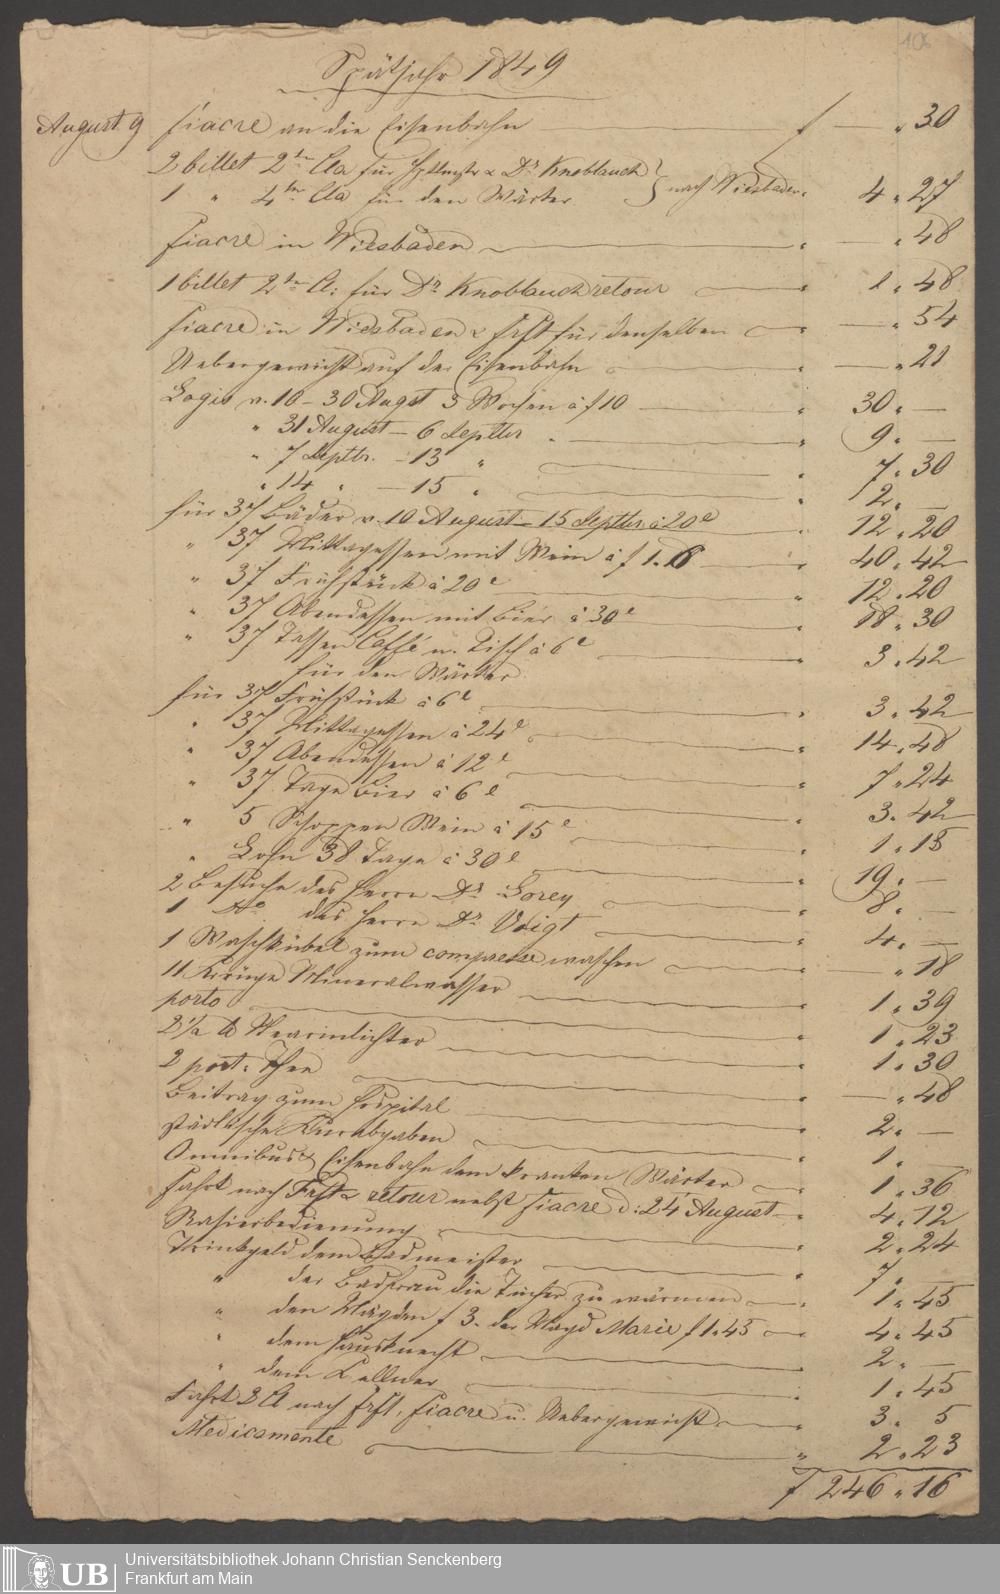 106
Spätjahr 1849
August 9 fiacre an die Eisenbahn f — " 30
2 billet 2ter Cla für & Dr Knoblauch
1 " 4ter Cla für den Wärter } nach Wiesbaden " 4 " 27
fiacre in Wiesbaden " — " 48
1 billet 2ter Cl: für Dr Knoblauch retour " 1 " 48
fiacre in Wiesbaden & Frft für denselben " — " 54
Uebergewicht auf der Eisenbahn " — " 21
Logis v. 10 – 30 Augst 3 Wochen à f 10 " 30 " —
" 31 August – 6 Septbr " 9 " —
" 7 Septbr. – 13 " " 7 " 30
" 14 " – 15 " " 2 " —
für 37 Bäder v. 10 August – 15 Septbr à 20 " 12 " 20
" 37 Mittagessen mit Wein à f 1. 6 " 40 " 42
" 37 Frühstück à 20 " 12 " 20
" 37 Abendessen mit Bier à 30 " 18 " 30
" 37 Tassen Caffé n. Tisch à 6 " 3 " 42
für den Wärter
für 37 Frühstück à 6 " 3 " 42
" 37 Mittagessen à 24 " 14 " 48
" 37 Abendessen à 12 " 7 " 24
" 37 Tage Bier à 6 " 3 " 42
" 5 Schoppen Wein à 15 " 1 " 15
" Lohn 38 Tage à 30 " 19 " —
2 Besuche des Herrn Dr " 8 " —
1 do des Herrn Dr Voigt " 4 " —
1 Waschkübel zum compresse waschen " — " 18
11 Krüge Mineralwasser " 1 " 39
porto " 1 " 23
2 1/2 ℔ Stearinlichter " 1 " 30
2 port: Thee " — " 48
Beitrag zum Hospital " 2 " —
städtische Kurabgaben " 1 " —
Omnibus & Eisenbahn dem kranken Wärter " 1 " 36
Fahrt nach Frft & retour nebst fiacre d: 24 August " 4 " 12
Rasierbedienung " 2 " 24
Trinkgeld dem Badmeister " 7 " —
" der Badfrau die Tücher zu wärmen " 1 " 45
" den Mägden f 3. der Magd Marie f 1.45 " 4 " 45
" dem Hausknecht " 2 " —
" dem Kellner " 1 " 45
Fahrt 3 Cl nach Frft, fiacre u. Uebergewicht " 3 " 5
Medicamente " 2 " 23
f 246 " 16
UB
Universitätsbibliothek Johann Christian Senckenberg
Frankfurt am Main